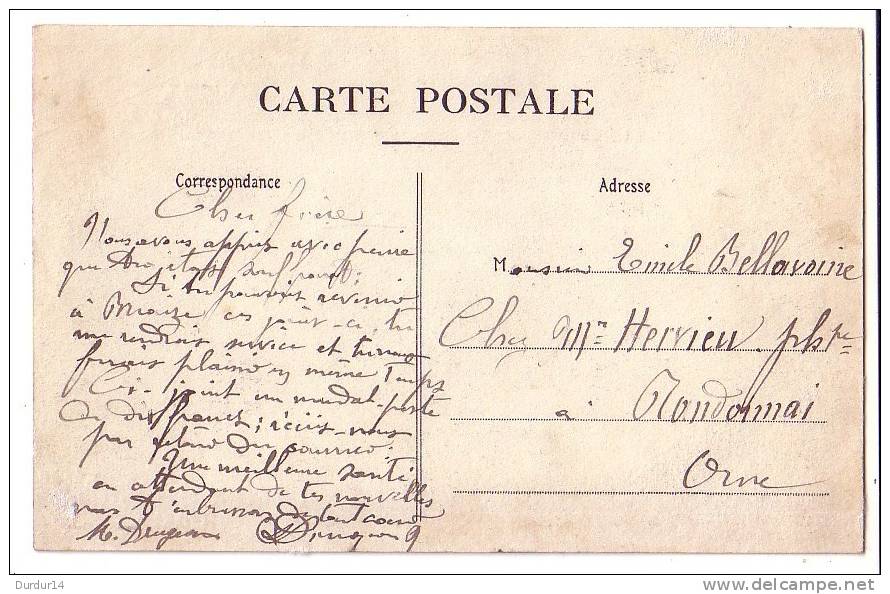 CARTE POSTALE
Correspondance
Cher frère
Nous avons appris avec peine
que tu étais souffrant;
Si tu pouvais revenir
à ces jours-ci, tu
me rendrais service et tu nous
ferais plaisir en même temps
Ci-joint un mandat-poste
de dix francs; écris-nous
par retour du courrier.
Une meilleure santé
en attendant de tes nouvelles
nous t'embrassons de tout coeur
M. Drugeon Drugeon
Adresse
Monsieur Emile Bellavoine
Chez Mr Hervieu, phpe
à Randonnai
Orne
Durdur14
www.delcampe.net